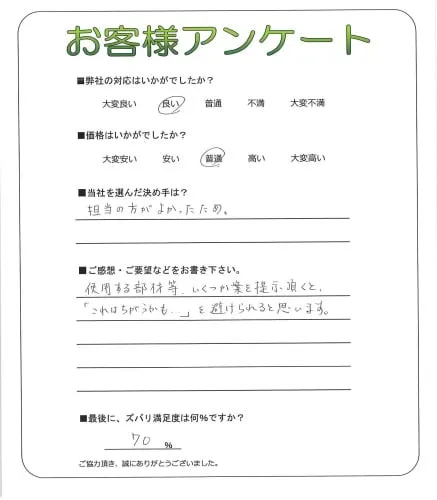 お客様アンケート
■弊社の対応はいかがでしたか?
大変良い 良い 普通 不満 大変不満
■価格はいかがでしたか?
大変安い 安い 普通 高い 大変高い
■当社を選んだ決め手は?
担当の方がよかったため。
■ご感想・ご要望などをお書き下さい。
使用する部材等、いくつか案を提示頂くと、
「これはちがうかも…」を避けられると思います。
■最後に、ズバリ満足度は何%ですか?
70 %
ご協力頂き、誠にありがとうございました。